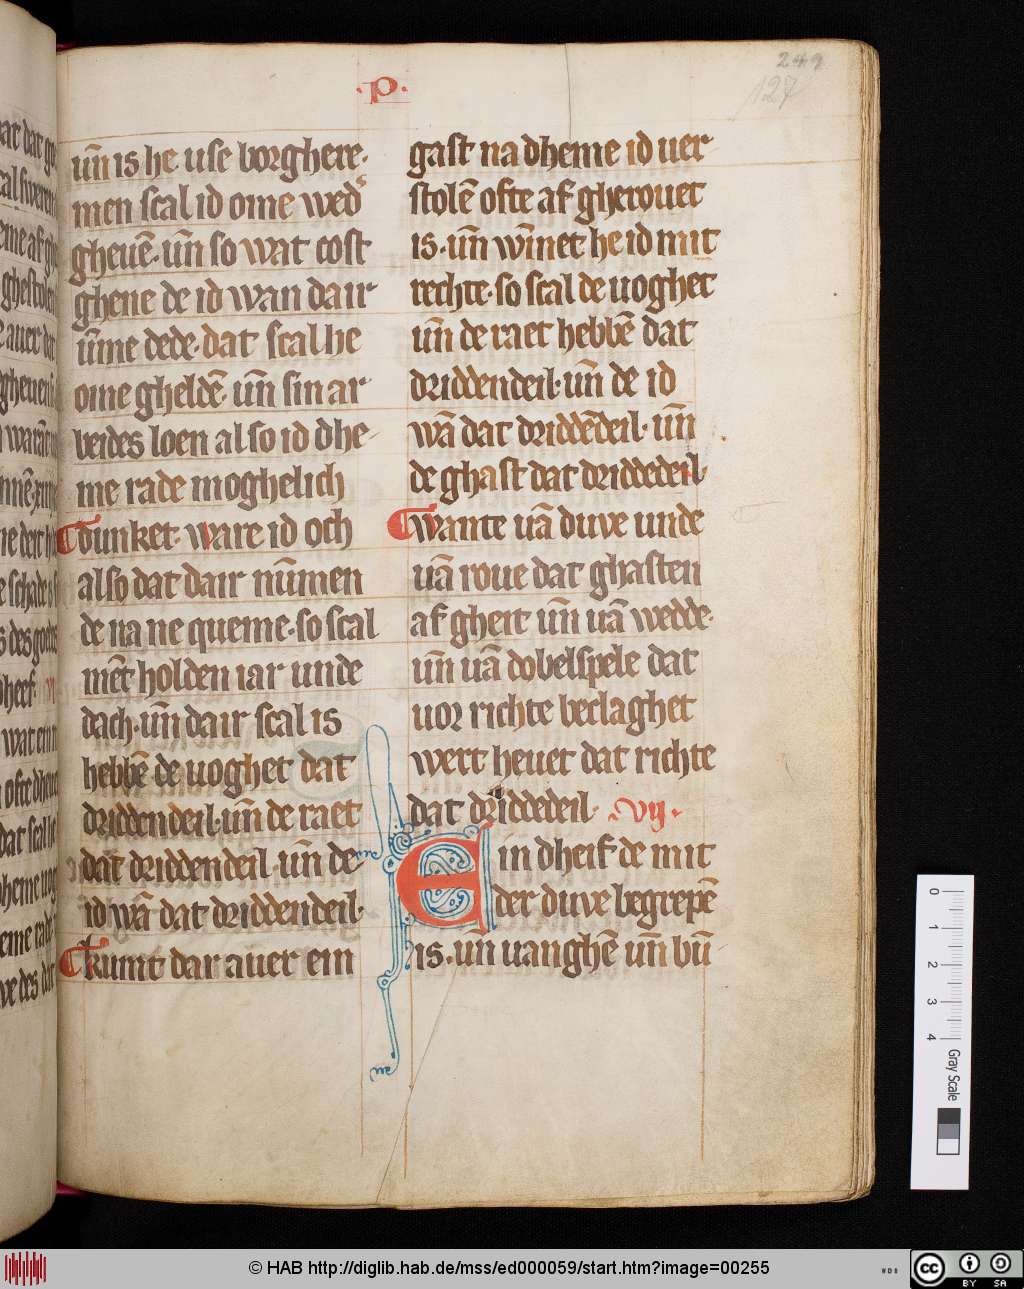 .p.
249
127
vn̄ is he vse borghere·
men scal id ome wed͛
gheuē· vn̄ so wat cost
ghene de id wan dair
vm̄me dede· dat scal he
ome gheldē· vn̄ sin ar
beides loen also id dhe
me rade moghelich
dunket· ware id och
also dat dair nūmen
de na ne queme· so scal
mēt holden iar unde
dach· vn̄ dair scal is
hebbē de uoghet dat
driddendeil· vn̄ de raet
dat driddendeil· vn̄ de
id wā dat driddendeil·
kumt dar auer ein
gast na dheme id uer
stolē ofte af gherouet
is· vn̄ wīnet he id mit
rechte· so scal de uoghet
vn̄ de raet hebbē dat
driddendeil· vn̄ de id
wā dat driddēdeil· vn̄
de ghast dat driddedeil·
wante uā duve unde
uā roue dat ghasten
af gheit vn̄ uā wedde·
vn̄ uā dobelspele dat
uor richte beclaghet
wert heuet dat richte
dat driddedeil· ·vij·
Ein dheif de mit
der duve begrepē
is· vn uanghē vn̄ bū
© HAB http://diglib.hab.de/mss/ed000059/start.htm?image=00255
0
1
2
3
4
Gray Scale
WDB
cc
BY SA